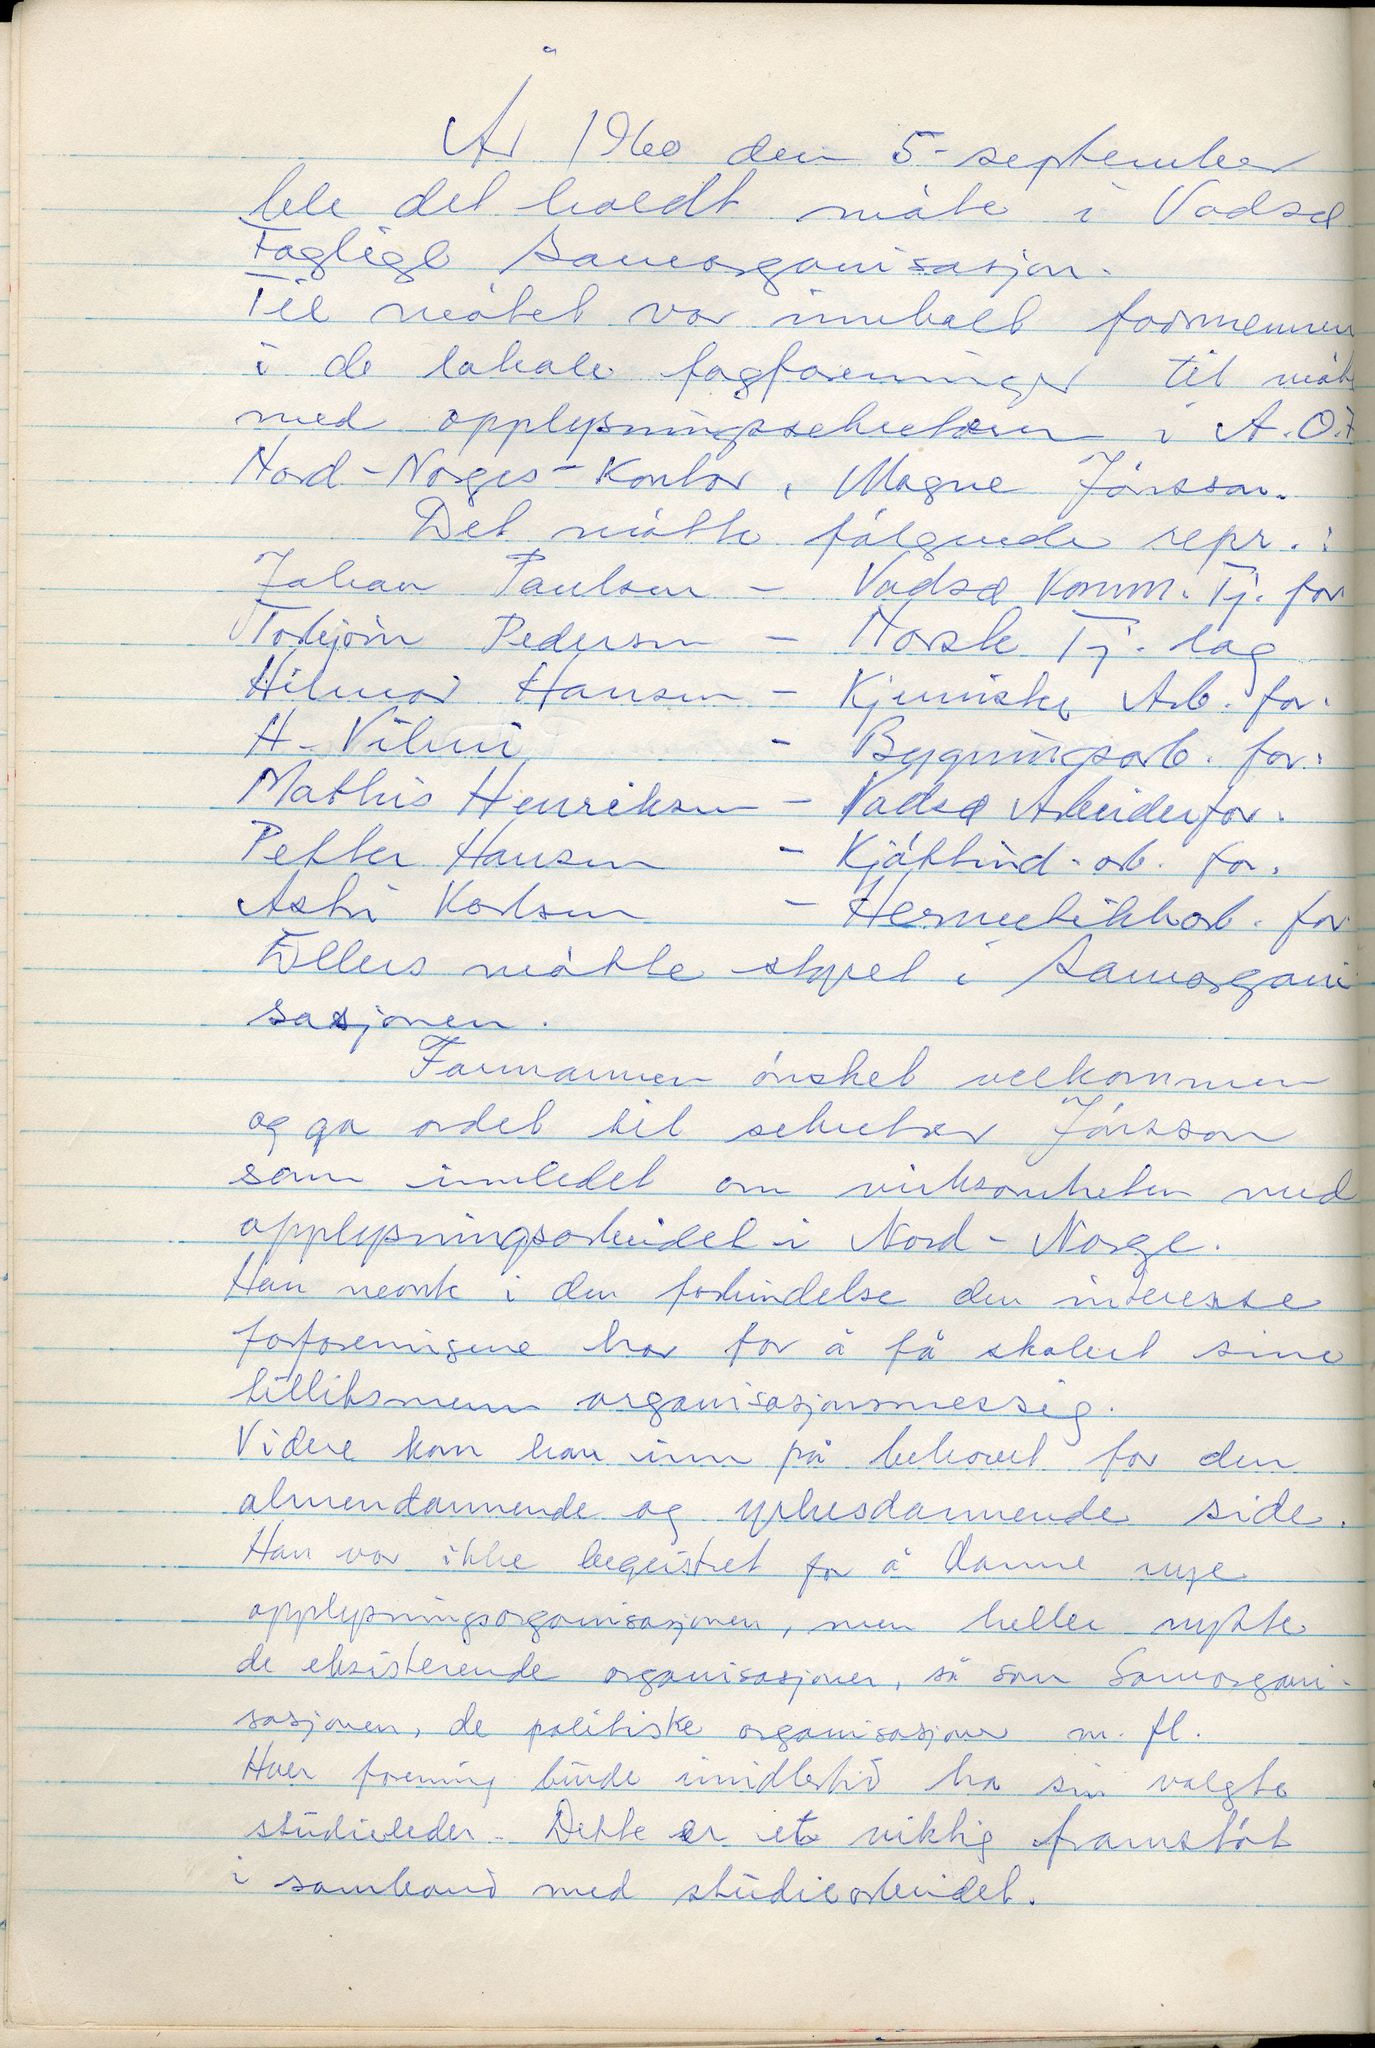 År 1960 den 5. september
ble det holdt møte i Vadsø
Faglige Samorganisasjon.
Til møtet var innkalt formennene
i de lokale fagforeninger til møte
med opplysningssekretæren i A.O.F.
Nord-Norges-Kontor, Magne Jónsson.
Det møtte følgende repr.:
Johan Paulsen - Vadsø Komm. Tj. for
Torbjørn Pedersen - Norsk Tj. lag
Hilmar Hansen - Kjemiske Arb. for.
H. Vilmi - Bygningsarb. for.
Mathis Henriksen - Vadsø Arbeiderfor.
Petter Hansen - Kjøttind. arb. for.
Astri Karlsen - Hermetikkarb. for
Ellers møtte styret i Samorgani
sasjonen.
Formannen ønsket velkommen
og ga ordet til sekretær Jónsson
som innledet om virksomheten med
opplysningsarbeidet i Nord-Norge.
Han nevnte i den forbindelse den interesse
forforeningene har for å få skolert sine
tillitsmenn organisasjonsmessig.
Videre kom han inn på behovet for den
almendannende og yrkesdannende side.
Han var ikke begeistret for å danne nye
opplysningsorganisasjonen, men heller nytte
de eksisterende organisasjoner, så som Samorgani-
sasjonen, de politiske organisasjoner m. fl.
Hver forening burde imidlertid ha sin valgte
studieleder. Dette er et viktig framstøt
i samband med studiearbeidet.